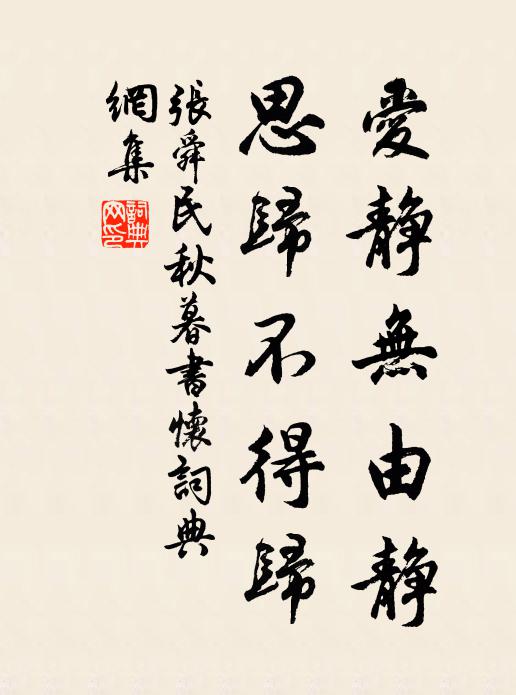 愛静無由静
思歸不得歸
張舜民秋暮書懷詞典
網集
詞典网印